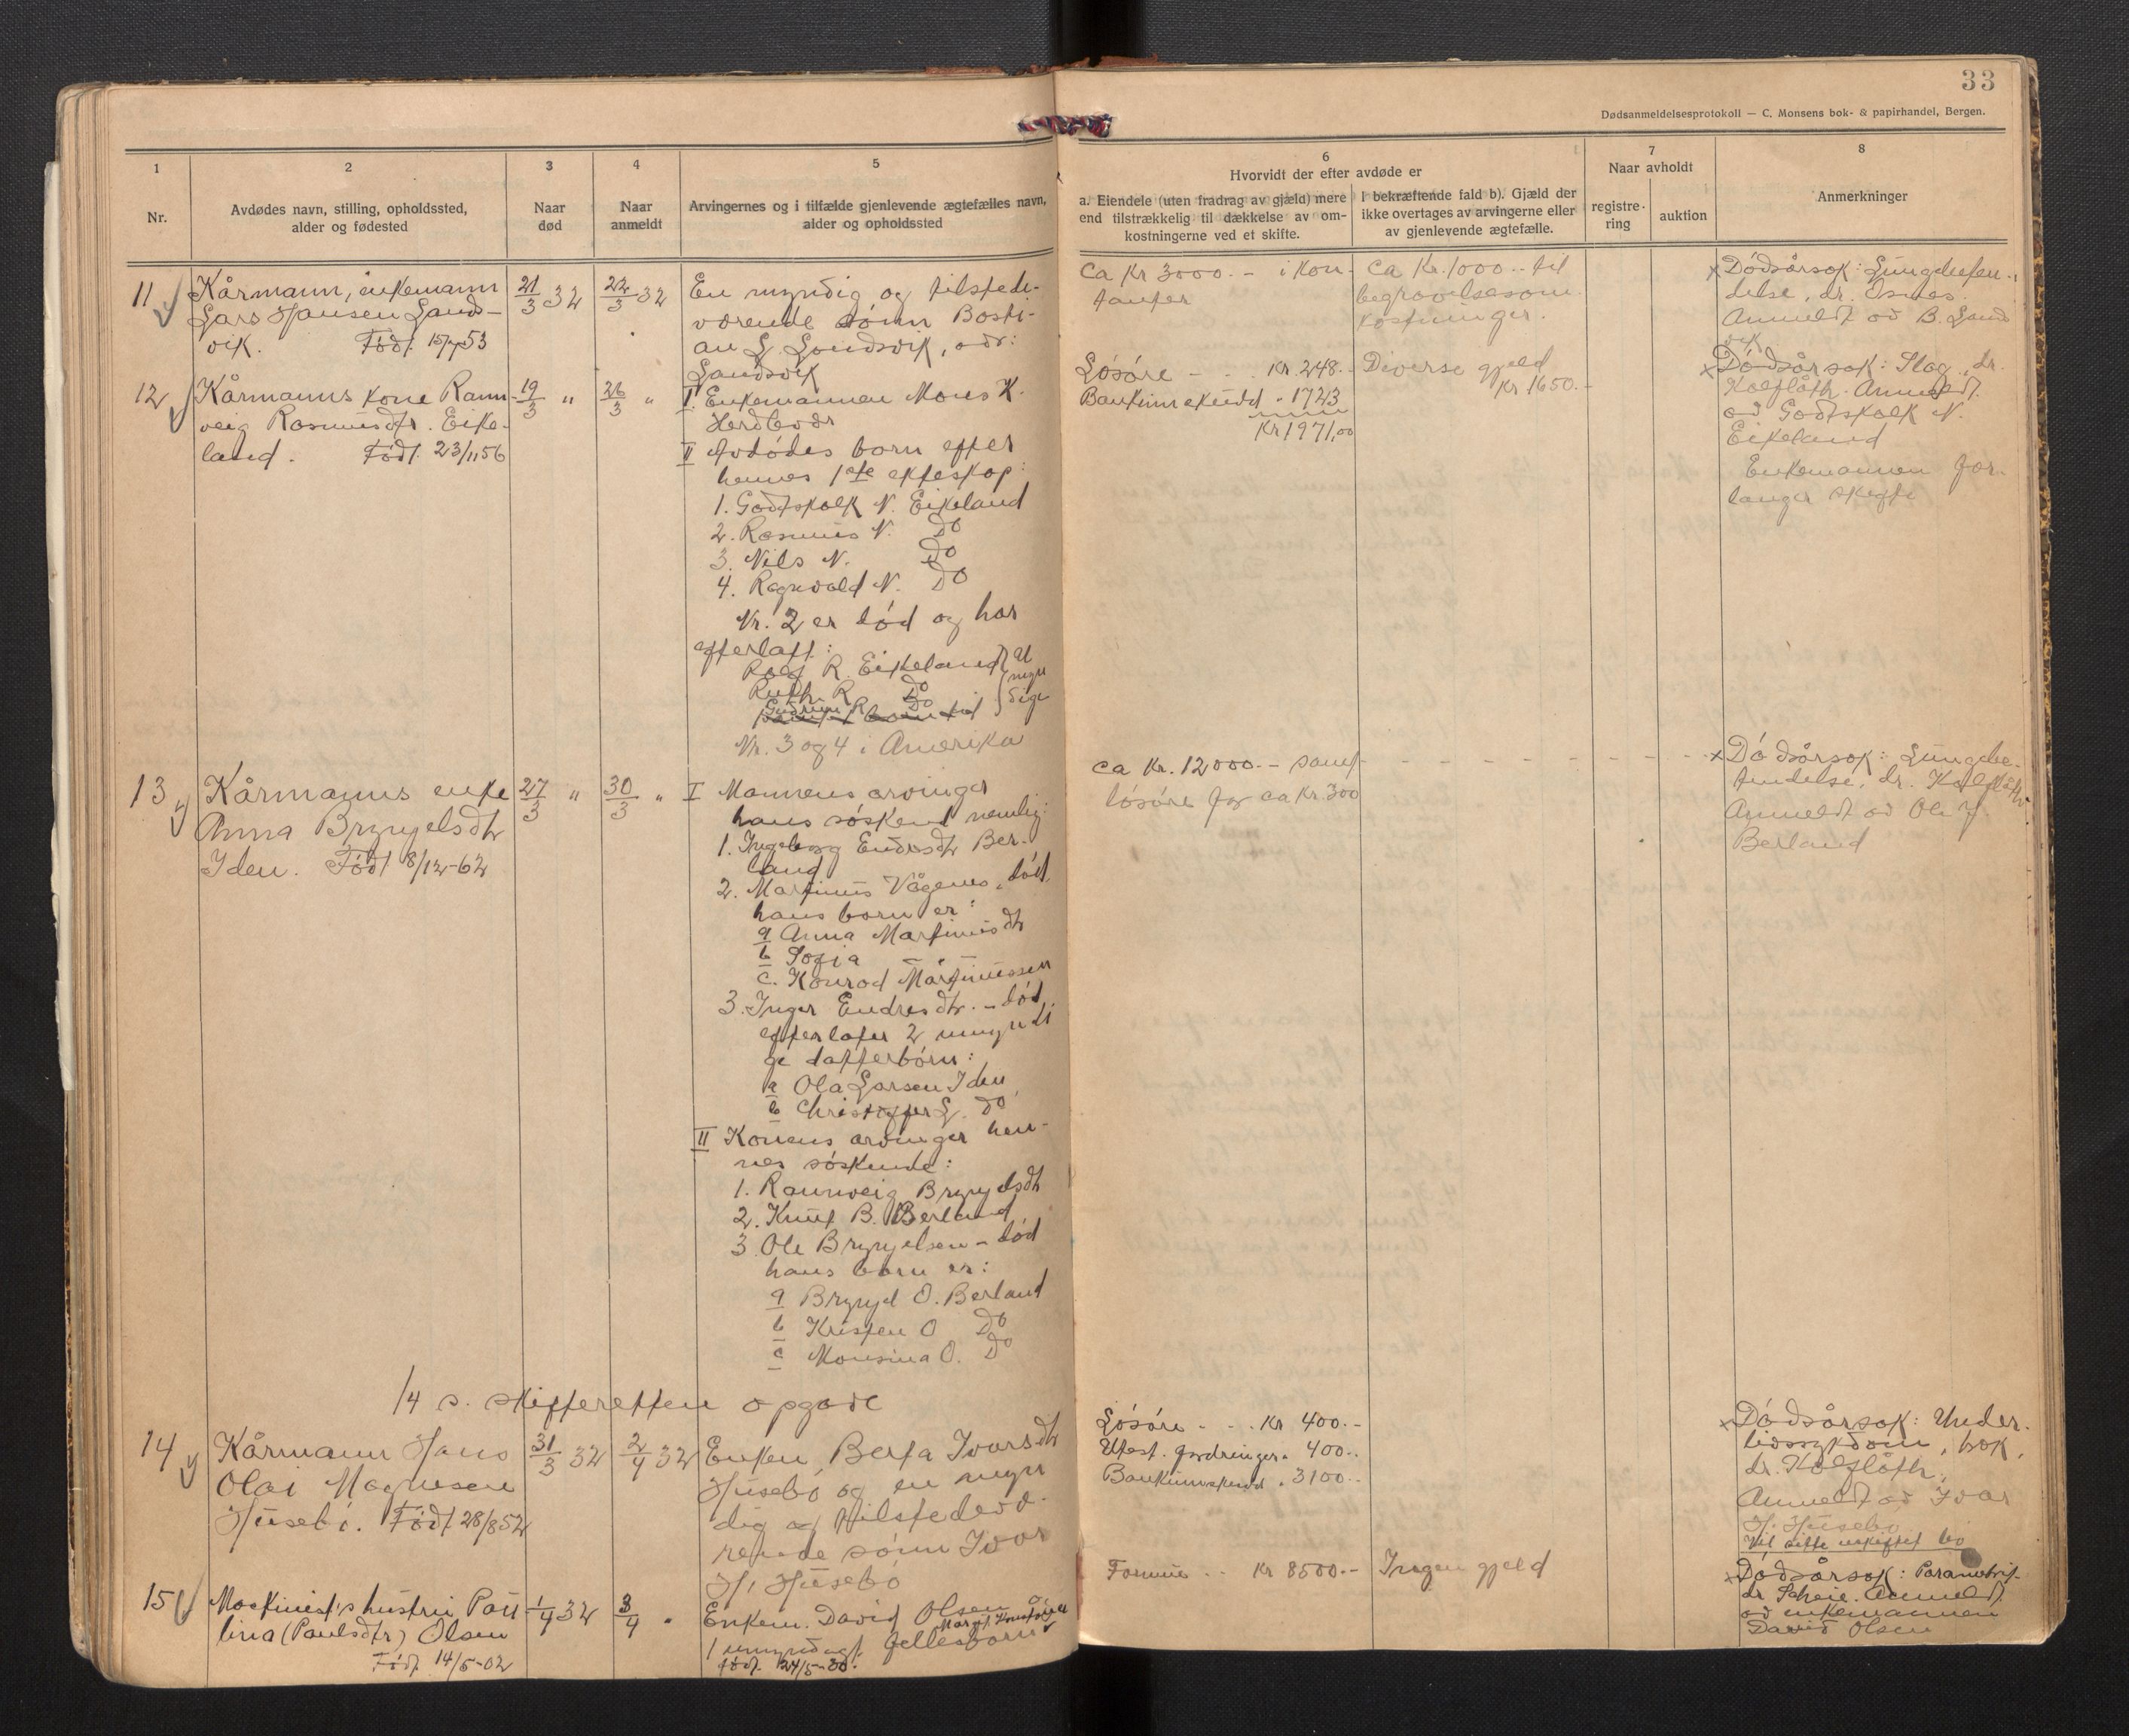 33
Dødsanmeldelsesprotokoll — C. Monsens bok- & papirhandel, Bergen.
1
Nr.
2
Avdødes navn, stilling, opholdssted,
alder og fødested
3
Naar
død
4
Naar
anmeldt
5
Arvingernes og i tilfælde gjenlevende ægtefælles navn,
alder og opholdssted
6
Hvorvidt der efter avdøde er
a. Eiendele (uten fradrag av gjæld) mere
end tilstrækkelig til dækkelse av om-
kostningerne ved et skifte.
I bekræftende fald b). Gjæld der
ikke overtages av arvingerne eller
av gjenlevende ægtefælle.
7
Naar avholdt
registre-
ring
auktion
8
Anmerkninger
11
Kårmann, enkemann
Lars Hansen Sands-
vik. Født 15/7 53
21/3 32
22/3 32
En myndig og tilstede-
værende sønn Basti-
an L. Sandsvik, adr:
Sandsvik
Ca Kr 3000.- i kon-
tanter
Ca Kr. 1000.- til
begravelsesom-
kostninger.
x Dødsårsok: Lungebeten-
delse, dr. Osnes.
Anmeldt av B. Sand
vik
12
Kårmanns kone Rann-
veig Rasmusdtr. Eike-
land. Født 23/11 56
19/3 "
26/3 "
I. Enkemannen Mons K.
Herdlevær
II Avdødes born efter
hennes 1ste ekteskap:
1. Godtskalk N. Eikeland
2. Rasmus N. Do
3. Nils N. Do
4. Ragnvald N. Do
Nr. 2 er død og har
efterlatt:
Rolf R. Eikeland
Ruth R Do
Gudrun R Do
U
myn
dige
Nr. 3 og 4 i Amerika
Løsøre - - . Kr. 248.-
Bankinnskudd " 1723
Kr 1971,00
Diverse gjeld
Kr 1650.-
x Dødsårsok: Slag, dr.
Kolflåth. Anmeldt
av Godtskalk N.
Eikeland
Enkemannen for-
langer skifte
13
Kårmanns enke
Anna Brynjelsdtr
Iden. Født 8/12-62
27/3 "
30/3 "
I Mannens arvinger
hans søskend nemlig:
1. Ingeborg Endresdtr Ber-
land
2. Martinus Vågenes, død,
hans born er:
a Anna Martinusdtr
b Sofia
c. Konrad Martinussen
3. Inger Endresdtr. - død,
efterlater 2 myndi
ge datterbørn:
a Ola Larsen Iden
b Christoffer L. Do
II Konens arvinger hen-
nes søskende:
1. Rannveig Brynjelsdtr
2. Knut B. Berland
3. Ole Brynjelsen - død
hans born er:
a Brynjel O. Berland
b Kristen O Do
c Monsina O. Do
ca Kr. 12000.- samt
løsøre for ca Kr. 300
x Dødsårsok: Lungebe-
tendelse, dr. Kolflåth
Anmeldt av Ole J.
Berland
1/4 s. skifteretten opgave
14
Kårmann Hans
Olai Magnesen
Husebø. Født 28/8 52
31/3 32
2/4 32
Enken, Berta Ivarsdtr
Husebø og en myn
dig og tilstedevæ-
rende sønn Ivar
H. Husebø
Løsøre - - . Kr 400.-
Utest. fordringer " 400.-
Bankinnskudd " 3100.-
x Dødsårsok: Under-
livssykdom,
dr. Kolflåth,
Anmeldt av Ivar
H. Husebø
Vil sitte uskiftet bo
15
Maskinist's hustru Pau
lina (Paulsdtr) Olsen
Født 14/5-02
1/4 32
3/4 "
Enkem. David Olsen
1 umyndigt fellesbarn
født 24/5-30.
Formue - - Kr 8500.-
Ingen gjeld
x Dødsårsok: Parametrit.
dr Scheie. Anmeldt
av enkemannen
David Olsen